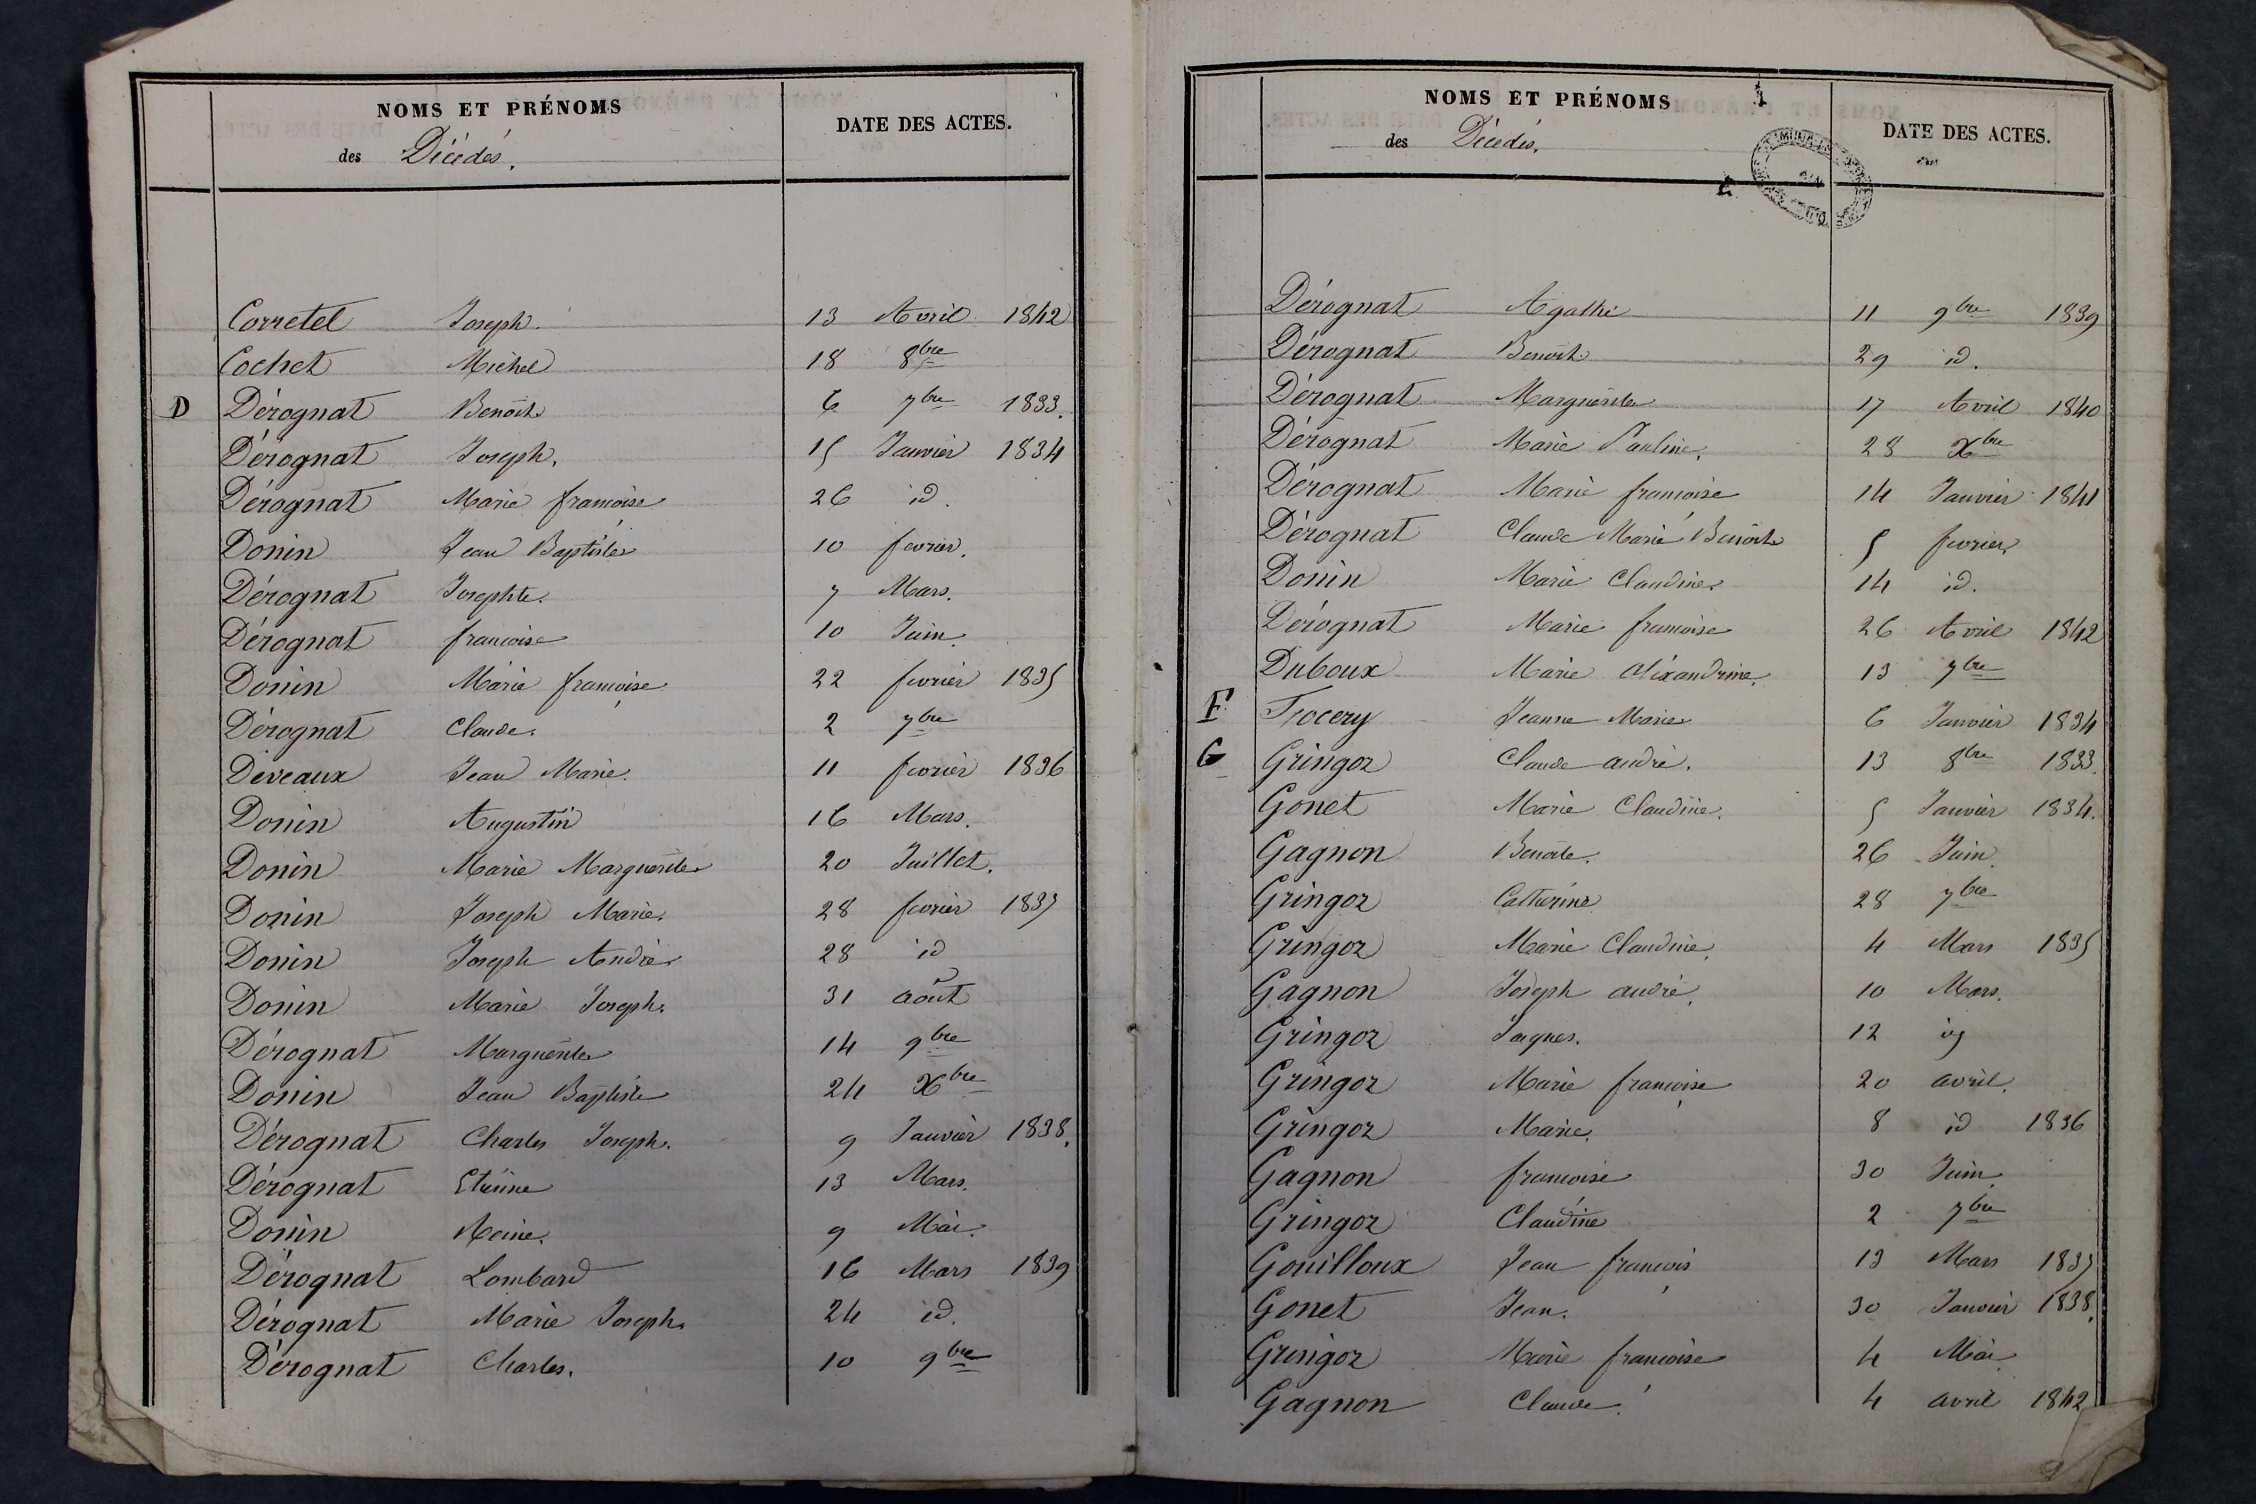 NOMS ET PRÉNOMS
des Décédés.
DATE DES ACTES.
Corretel Joseph. 13 Avril 1842
Cochet Michel 18 8bre
D Dérognat Benoit 6 7bre 1833.
Dérognat Joseph. 15 Janvier 1834
Dérognat Marie françoise 26 id.
Donin Jean Baptiste 10 fevrier.
Dérognat Josephte. 7 Mars.
Dérognat françoise 10 Juin.
Donin Marie françoise 22 fevrier 1835
Dérognat Claude. 2 7bre
Deveaux Jean Marie. 11 fevrier 1836
Donin Augustin 16 Mars.
Donin Marie Marguerite 20 Juillet.
Donin Joseph Marie. 28 fevrier 1837
Donin Joseph André. 28 id
Donin Marie Joseph. 31 août
Dérognat Marguerite 14 9bre
Donin Jean Baptiste 24 Xbre
Dérognat Charles Joseph. 9 Janvier 1838.
Dérognat Etienne 13 Mars.
Donin Reine. 9 Mai.
Dérognat Lombard 16 Mars 1839
Dérognat Marie Joseph. 24 id.
Dérognat Charles. 10 9bre
NOMS ET PRÉNOMS
des Décédés.
DATE DES ACTES.
Dérognat Agathe 11 9bre 1839
Dérognat Benoit 29 id.
Dérognat Marguerite 17 Avril 1840
Dérognat Marie Pauline. 28 Xbre
Dérognat Marie françoise 14 Janvier 1841
Dérognat Claude Marie Benoit 5 fevrier
Donin Marie Claudine. 14 id.
Dérognat Marie françoise 26 Avril 1842
Duboux Marie Aléxandrine. 13 7bre
F Jeanne Marie 6 Janvier 1834
G Gringoz Claude andré. 13 8bre 1833.
Gonet Marie Claudine. 5 Janvier 1834.
Gagnon Benoite. 26 Juin.
Gringoz Catherine 28 7bre
Gringoz Marie Claudine. 4 Mars 1835
Gagnon Joseph andré. 10 Mars.
Gringoz Jaques. 12 id
Gringoz Marie françoise 20 avril.
Gringoz Marie. 8 id 1836
Gagnon françoise 30 Juin.
Gringoz Claudine 2 7bre
Gouilloux Jean françois 13 Mars 1837
Gonet Jean. 30 Janvier 1838.
Gringoz Marie françoise 4 Mai
Gagnon Claude. 4 avril 1842